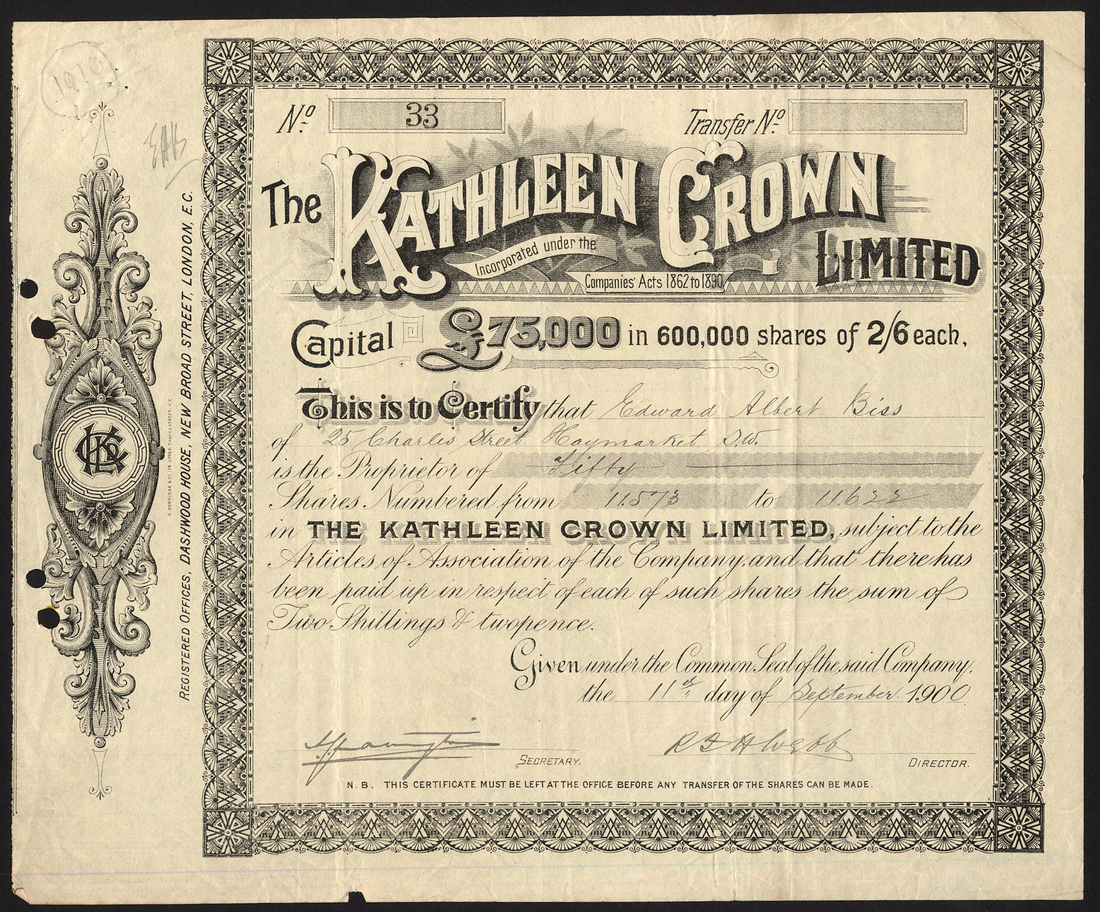 1910
EAB
Nº 33
Transfer Nº
The KATHLEEN CROWN LIMITED
Incorporated under the
Companies' Acts 1862 to 1890
Capital £75,000 in 600,000 shares of 2/6 each,
This is to Certify that Edward Albert Biss
of 25 Charles Street Haymarket S.W.
is the Proprietor of Fifty
Shares Numbered from 11573 to 11622
in THE KATHLEEN CROWN LIMITED, subject to the
Articles of Association of the Company, and that there has
been paid up in respect of each of such shares the sum of
Two Shillings & twopence.
Given under the Common Seal of the said Company,
the 11th day of September 1900
SECRETARY.
DIRECTOR.
N.B. THIS CERTIFICATE MUST BE LEFT AT THE OFFICE BEFORE ANY TRANSFER OF THE SHARES CAN BE MADE.
REGISTERED OFFICES, DASHWOOD HOUSE, NEW BROAD STREET, LONDON, E.C.